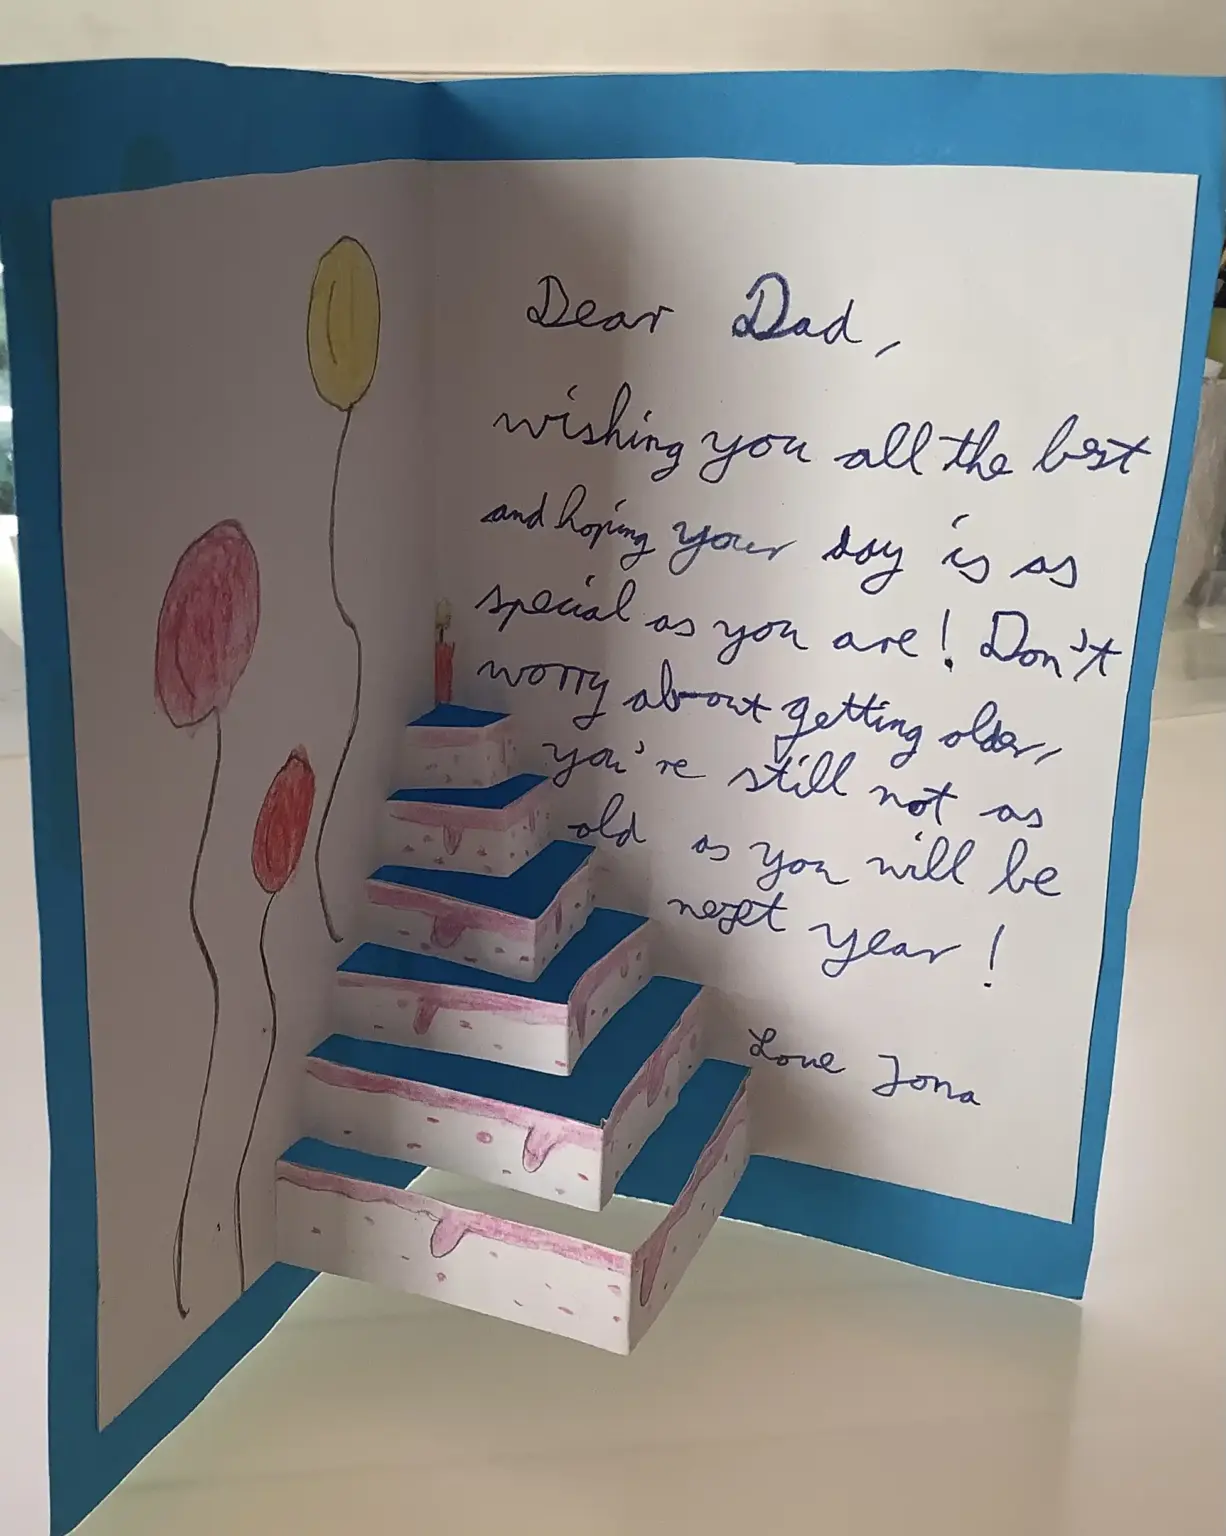 Dear Dad,
wishing you all the best
and hoping your day is as
special as you are! Don't
worry about getting older,
you're still not as
old as you will be
next year!
Love Jona